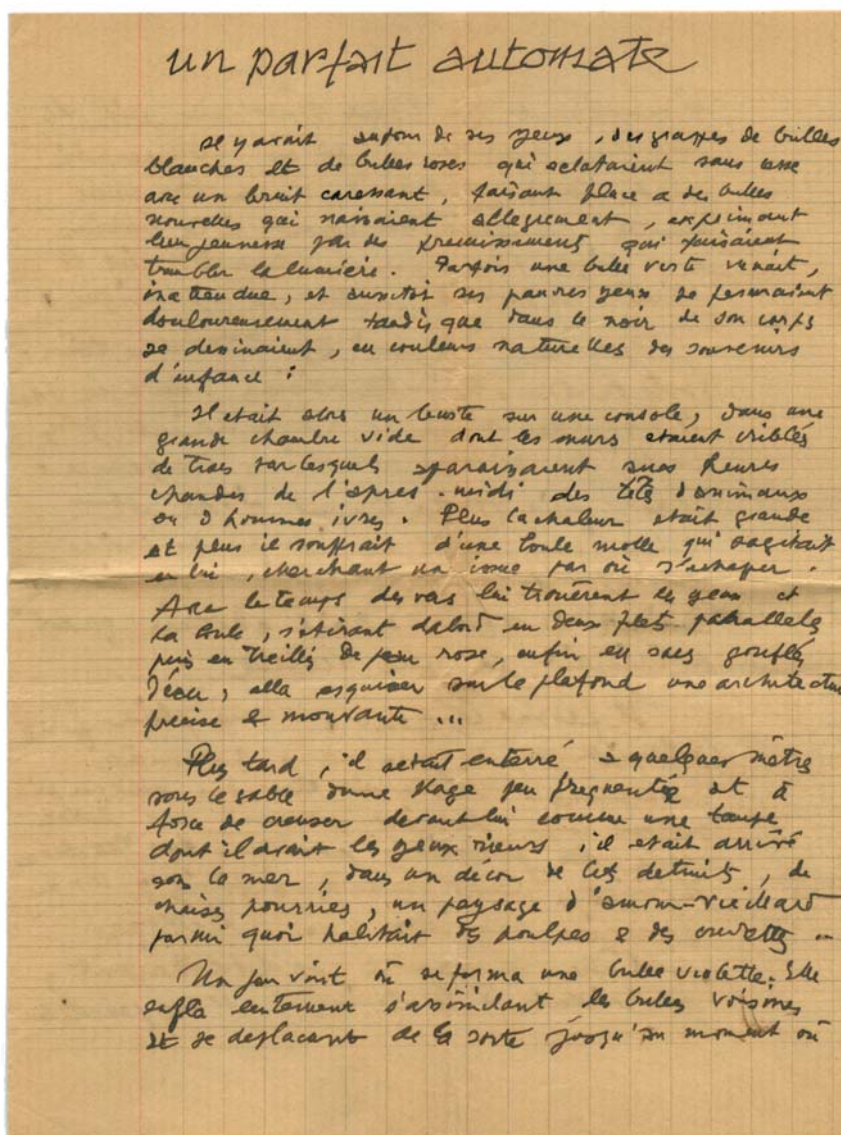 un parfait automate
Il y avait autour de ses yeux, des grappes de bulles
blanches et de bulles roses qui eclataient sans cesse
avec un bruit caressant, faisant place a des bulles
nouvelles qui naissaient allegrement, exprimant
leur jeunesse par des fremissements qui faisaient
trembler la lumiere. Parfois une bulle verte venait,
inattendue, et aussitot ses pauvres yeux se fermaient
douloureusement tandis que dans le noir de son corps
se dessinaient, en couleurs naturelles des souvenirs
d'enfance :
Il etait alors un buste sur une console, dans une
grande chambre vide dont les murs etaient criblés
de trous par lesquels apparaissaient aux heures
chaudes de l'apres-midi des têtes d'animaux
ou d'hommes ivres. Plus la chaleur etait grande
et plus il souffrait d'une boule molle qui s'agitait
en lui, cherchant un issue par où s'echaper.
Avec le temps des vers lui trouèrent les yeux et
la boule, s'etirant dabord en deux filets parallèles
puis en treillis de peau rose, enfin en sacs gonflés
d'eau, alla esquisser sur le plafond une architecture
precise & mouvante ...
Plus tard, il s'etait enterré a quelques mètres
sous le sable d'une plage peu frequentée et à
force de creuser devant lui comme une taupe
dont il avait les yeux rieurs, il etait arrivé
sous la mer, dans un décor de lits detruits, de
chaises pourries, un paysage d'amour-vieillard
parmi quoi habitait des poulpes & des crevettes ...
Un jour vint où se forma une bulle violette. Elle
enfla lentement s'assimilant les bulles voisines
et se deplacant de la sorte jusqu'au moment où